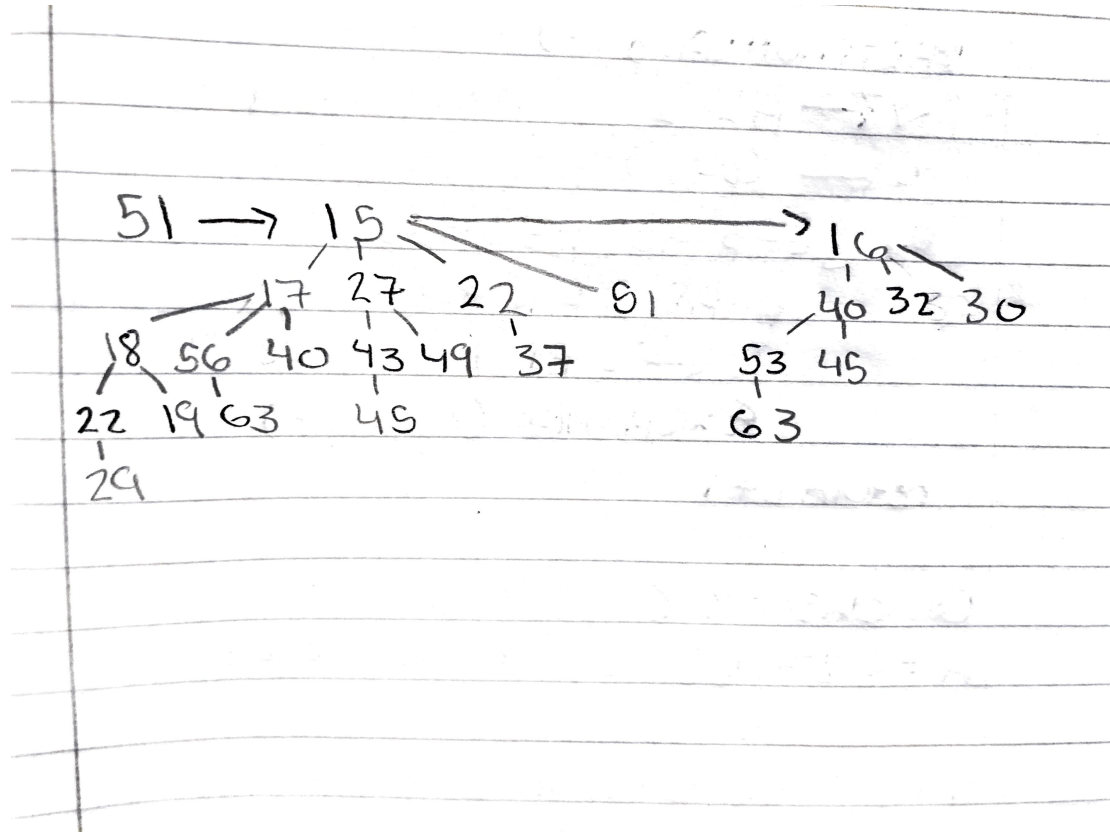 51 → 15 → 16
17 27 22 51 40 32 30
18 56 40 43 49 37 53 45
22 19 63 45 63
29